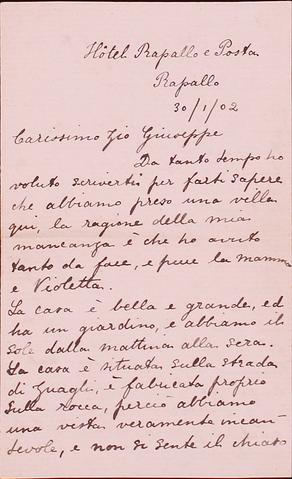 Hôtel Rapallo e Posta
Rapallo
30/1/02
Carissimo Zio Giuseppe
Da tanto tempo ho
voluto scriverti per farti sapere
che abbiamo preso una villa
qui, la ragione della mia
mancanza è che ho avuto
tanto da fare, e pure la mamma
e Violetta.
La casa è bella e grande, ed
ha un giardino, e abbiamo il
sole dalla mattina alla sera.
La casa è situata sulla strada
di, è fabucata proprio
sulla rocca, perciò abbiamo
una vista veramente incan-
tevole, e non si sente il chiaso